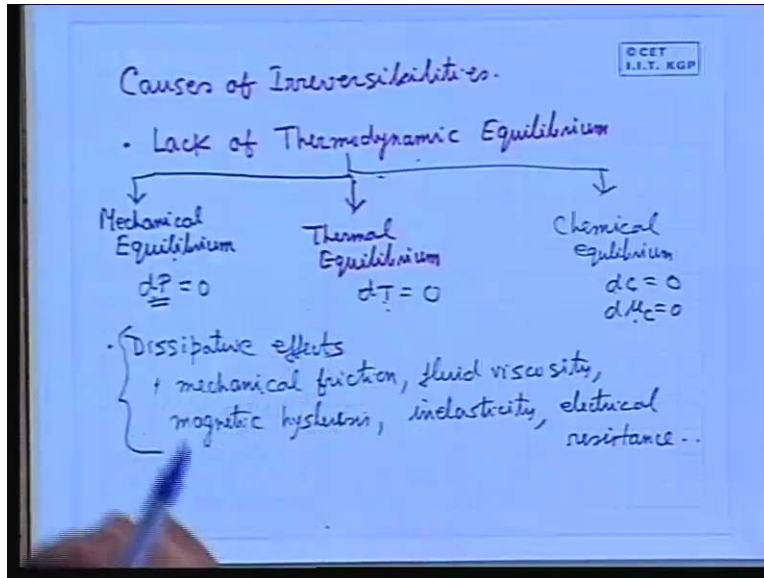 © CET
I.I.T. KGP
Causes of Irreversibilities.
• Lack of Thermodynamic Equilibrium
Mechanical Equilibrium
dP = 0
Thermal Equilibrium
dT = 0
Chemical equilibrium
dc = 0
dμc = 0
• Dissipative effects
+ mechanical friction, fluid viscosity,
magnetic hysteresis, inelasticity, electrical
resistance..